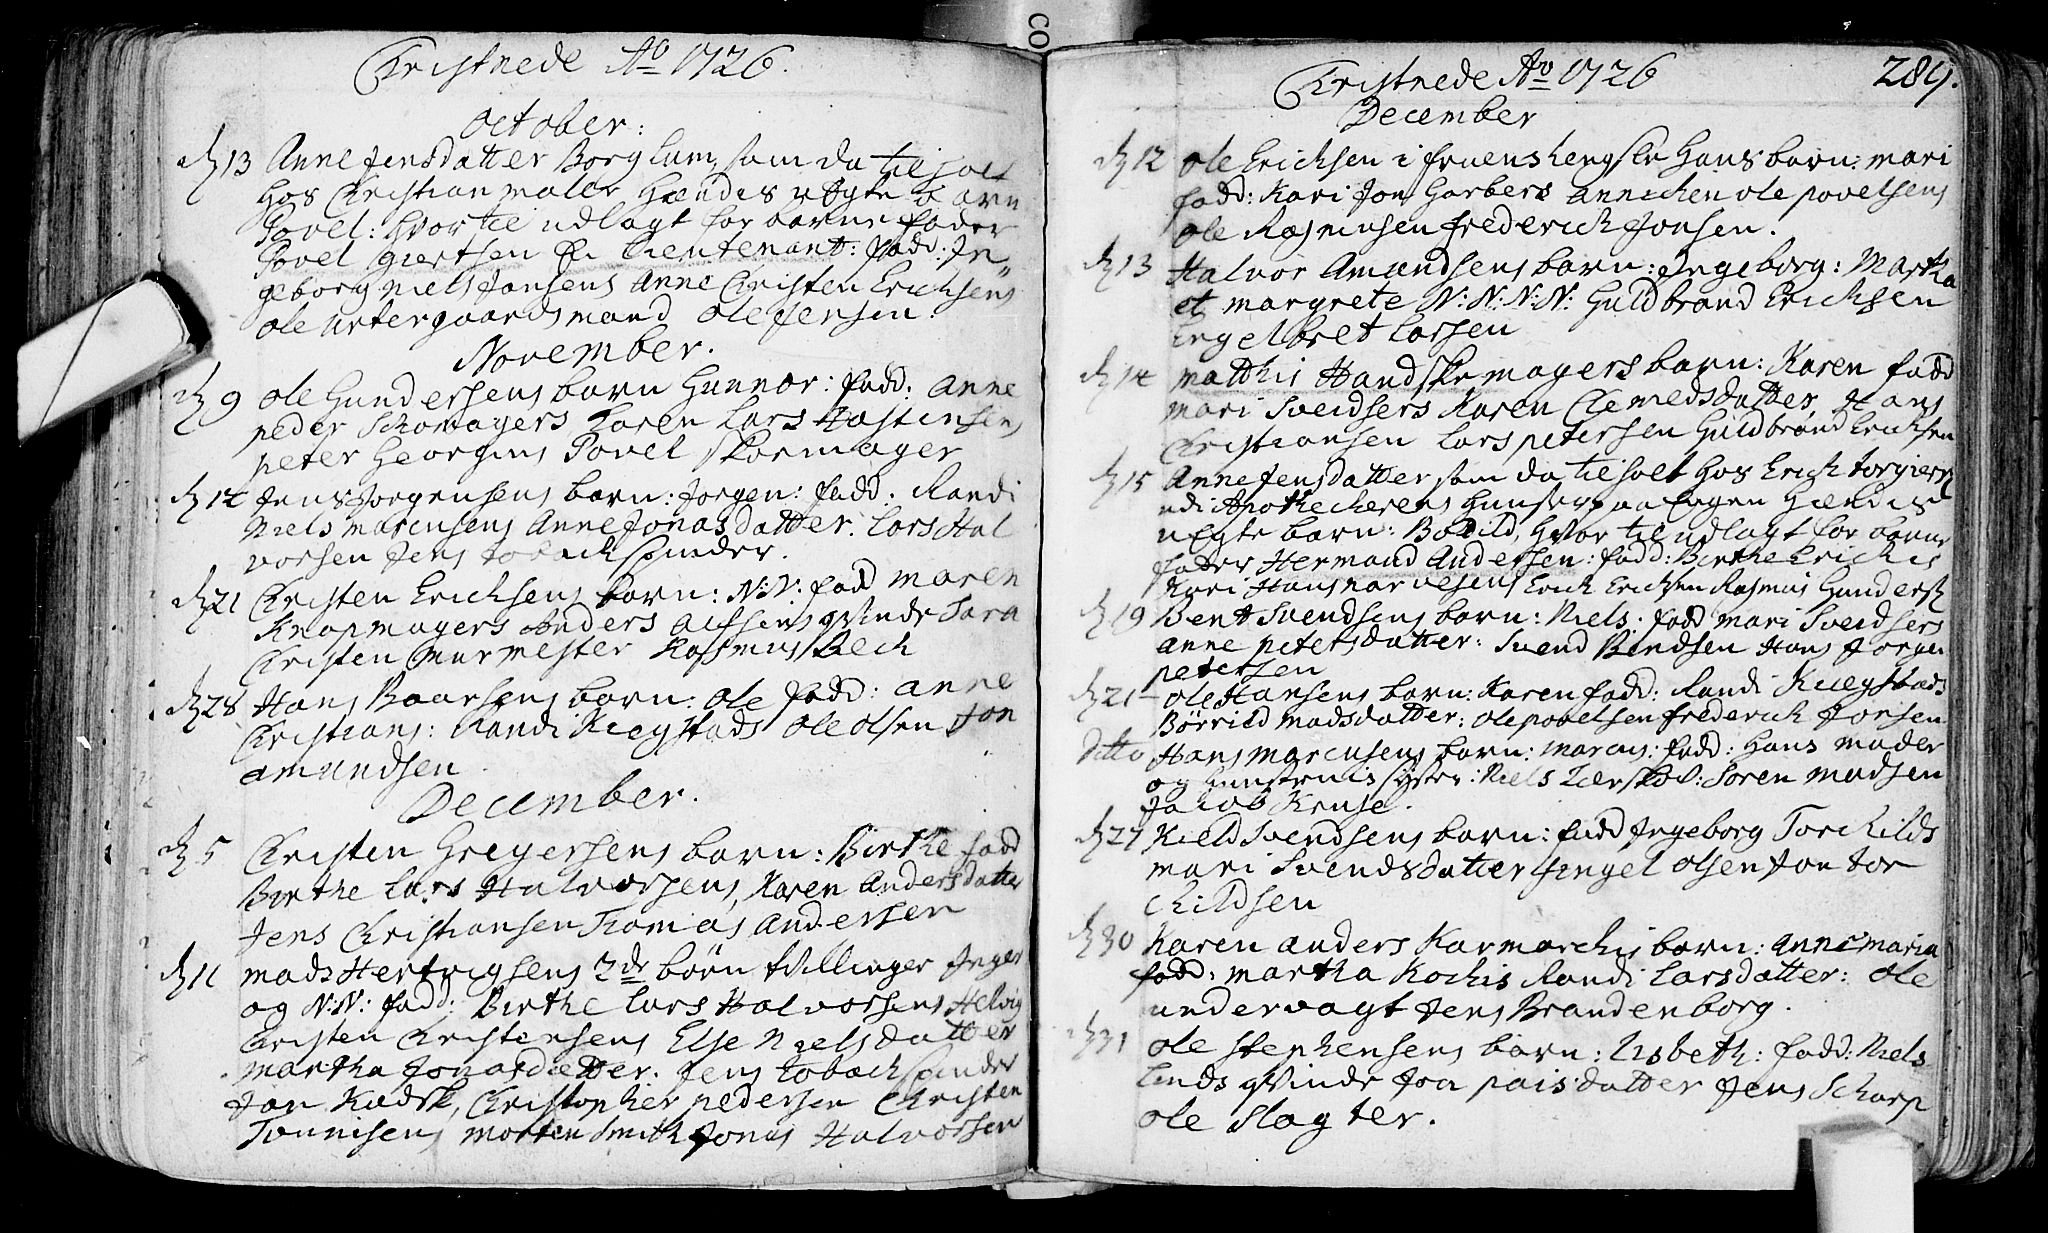 Christnede Ao 1726.
October:
d 13 Anne Jensdatter Borglum, som da tilholt
hos Christian maler Hendis uEgte barn
Povel: hvor til udlagt for barne fader
Povel Giertsen En Lieutenant: fadd: In„
geborg Niels Jansens Anne Christen Ericksens
ole urtegaardsmand Ole Jensen.
November.
d 9 ole Gundersens barn Gunnor: fadd: Anne
peder Schomagers Karen Lars Hastensens
peter Georgius Povel Skormager
d 14 Jens Jorgensens barn: Jorgen: fadd. Randi
Niels Marcusens Anne Jonasdatter. Lars Hal
vorsen Jens tobachspinder.
d 21 Christen Ericksens barn: N:N: fadd Maren
Knapmagers Anders Alfsens qvinde Sara
Christen Murmester Rasmus Bech
d 28 Hans Baarsens barn: Ole fadd: Anne
Christians: Randi Kiegstads Ole Olsen Jon
Amundsen.
December.
d 5 Christen Gregersens barn: Birthe fadd
Birthe Lars Halvorsens, Karen Andersdatter
Jens Christiansen Tomas Andersen
d 11 Mads Hertvigsens 2de børn tvillinger Inger
og N:N: fadd: Birthe Lars Halvorsens Helvig
Christen Christensens Else Nielsdatter
Martha Jonasdatter. Jens tobachspinder
Jan Kudsk, Christopher pedersen Christen
Tønnisens Morten Smith Jonas Halvorsen
Christnede Ao 1726 289.
December
d 12 ole Ericksen i fruens hengsle hans barn: Mari
fadd: Kari Jon Garbers Annichen ole povelsens
ole Rasmusen frederich Jonsen.
d 13 Halvor Amundsens barn: Ingeborg: Martha
et margrete N:N:N:N: Guldbrand Ericksen
Engelbret Larsen
d 14 Matthis Handskemagers barn: Karen fadd
mari Sveidsers Karen Clemedsdatter, Hans
Christiansen Lars petersen Guldbrand Ericksen
d 15 Anne Jensdatter som da tilholt hos Erick torgiers
udi Apothecherens Huuser paa Engen Hendis
uEgte barn: Bodild, hvor til udlagt for barne
fader Hermand Andersen: fadd: Birthe Erichis
Kari Hans Erick Ericksen Rasmus Gunders
d 19 Bent Svendsens barn: Niels. fadd mari Sveidsers
Anne petersdatter: Svend Bendsen Hans Jorgen
petersen
d 21 ole Hansens barn: Karen fadd: Randi Kiegstads
Børrild Madsdatter: ole povelsen frederich Jonsen
Ditto Hans Marcusens barn: Marcus: fadd: Hans moder
og hustruis syster: Niels Tærskov: Søren Madsen
Jacob Kruse.
d 27 Kield Svendsens barn: fadd Ingeborg Torchilds
mari Svendsdatter Engel olsen Jon tor
childsen
d 30 Karen Anders Karmarchis barn: Anne Maria
fadd: martha Kochis Randi Larsdatter: ole
undervagt Jens Brandenborg.
d 31 ole Stephensens barn: Lisbeth: fadd: Niels
Linds qvinde Joa paisdatter Jens Scharp
ole Slagter.